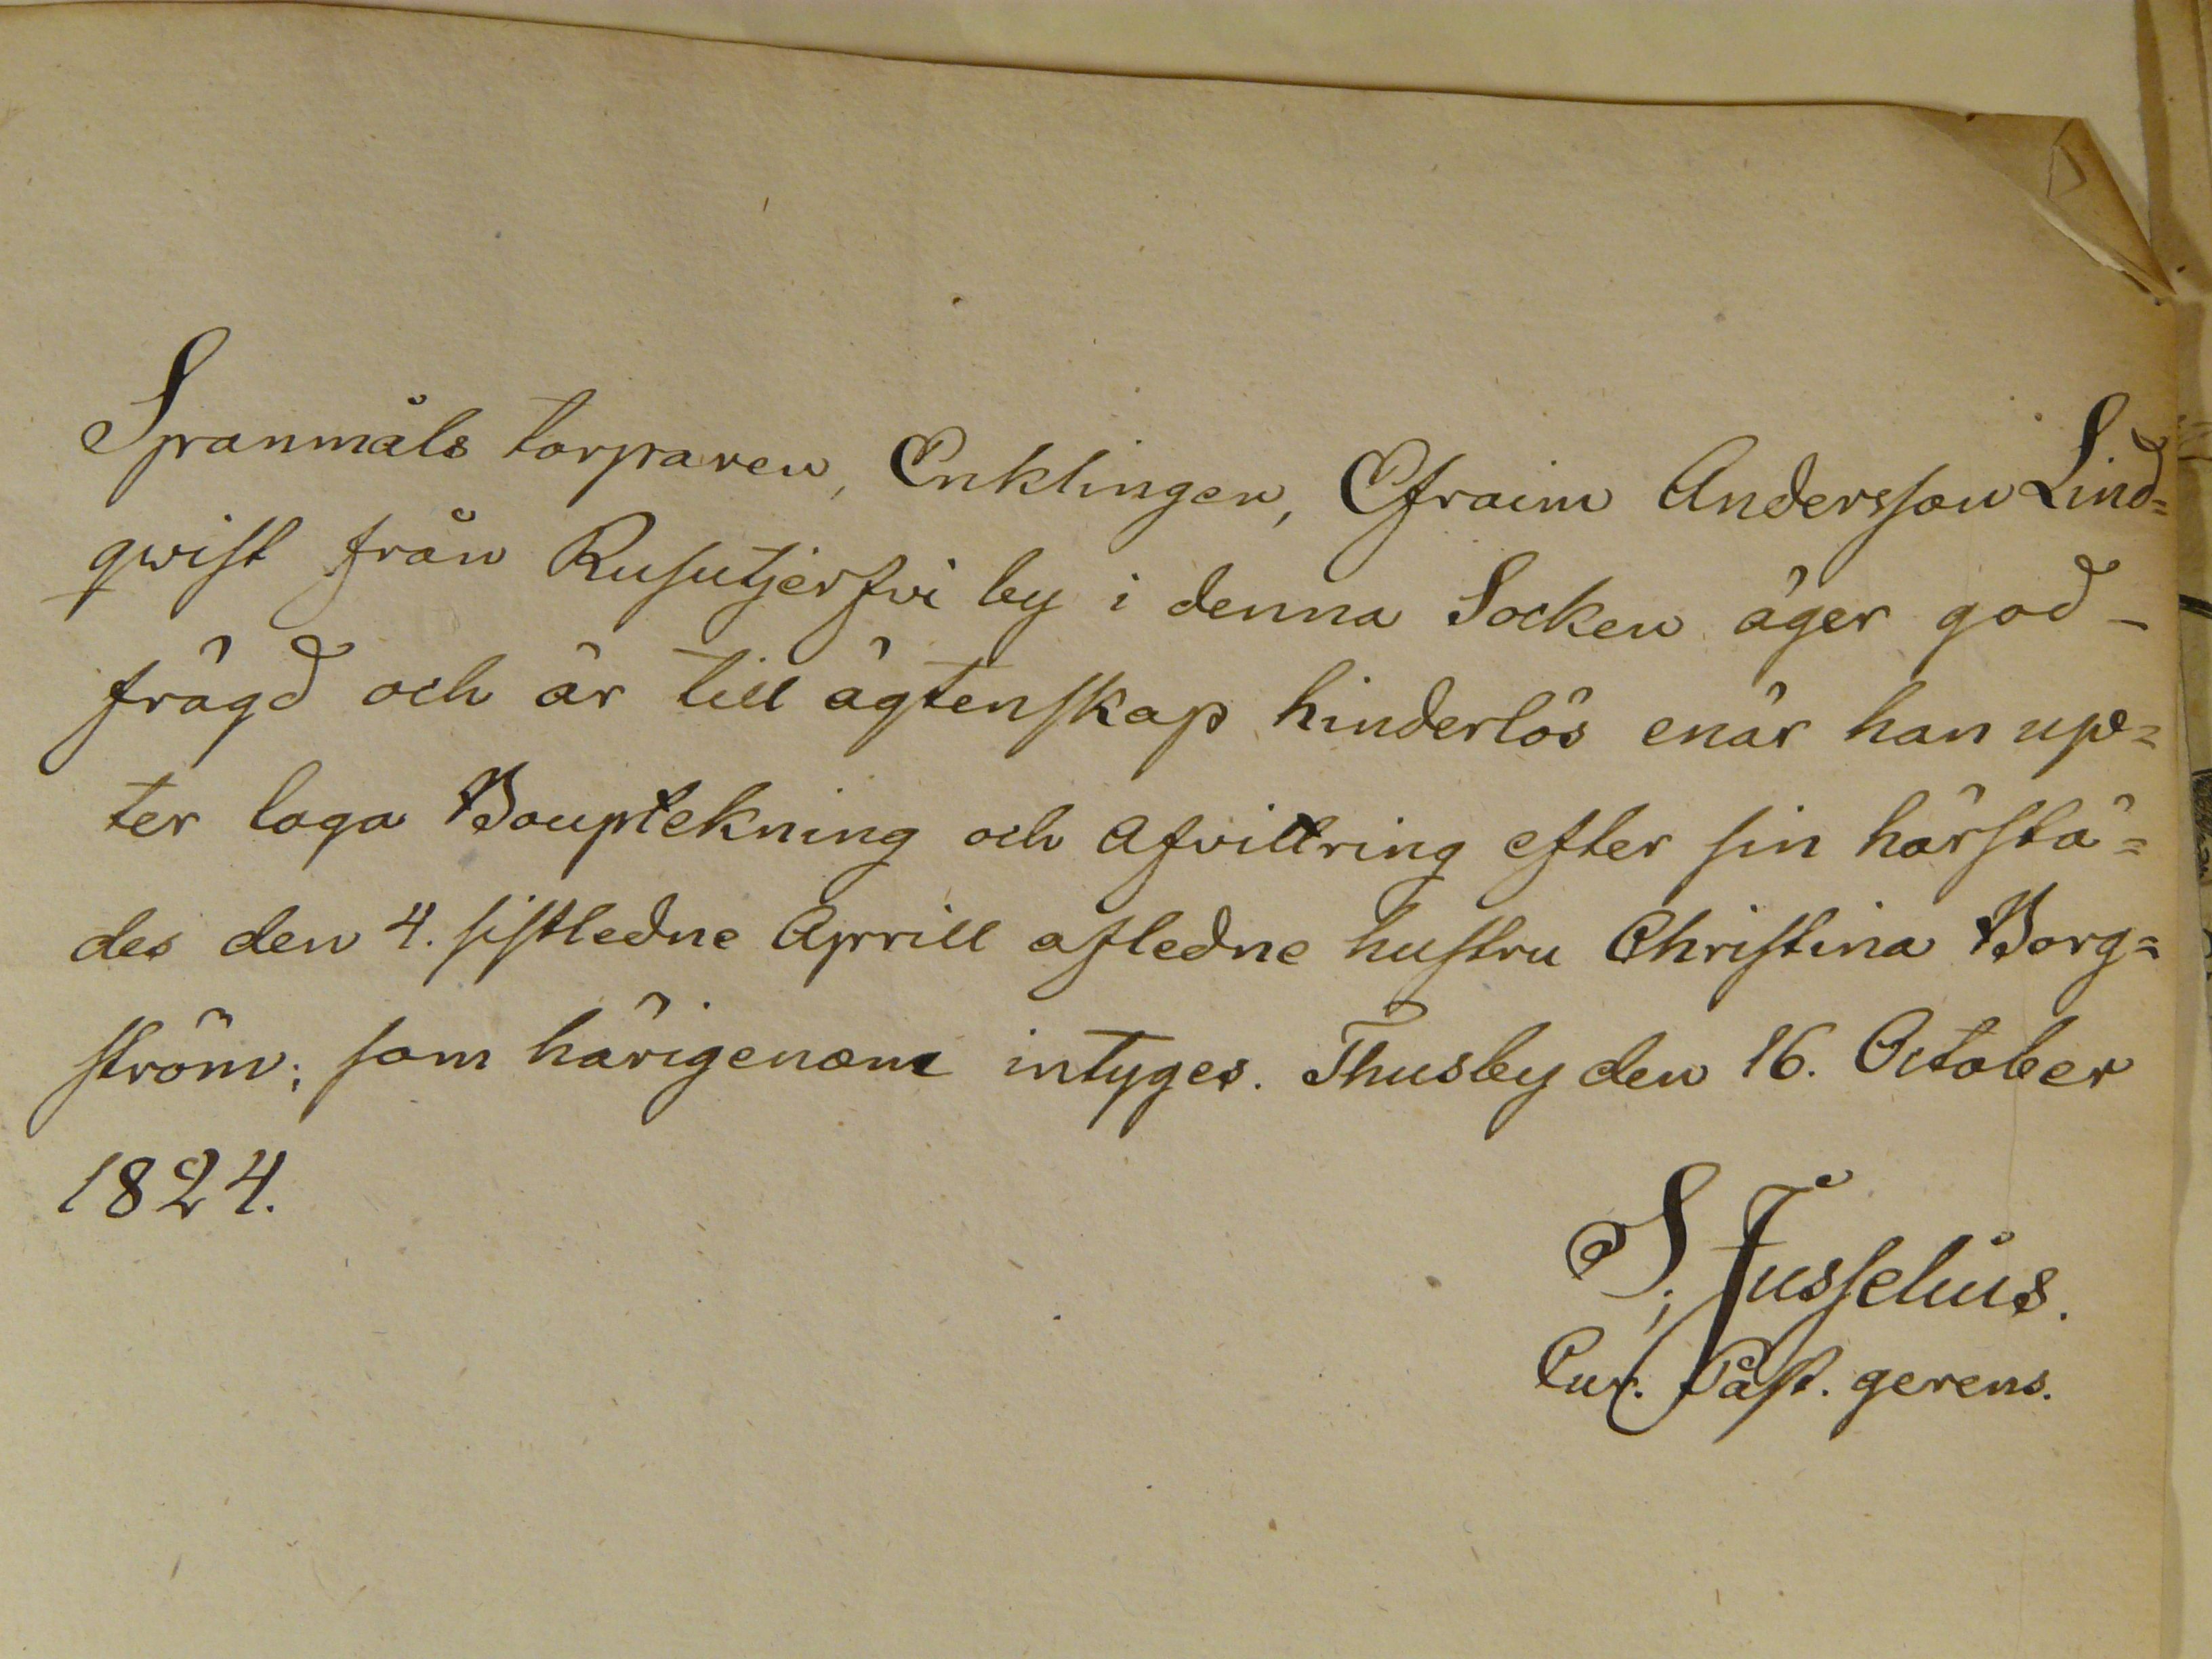 Spanmåls torparen, Enklingen, Efraim Andersson Lind=
qwist från Rusutjerfvi by i denna Socken äger god-
frägd och är till ägtenskap hinderlös enär han upt=
ter laga Bouptekning och afvittring efter sin härstä=
des den 4. sistledne Aprill afledne hustru Christina Borg=
ström; som härigenom intyges. Thusby den 16. October
1824.
S. Fusselius.
Cur. Past. gerens.